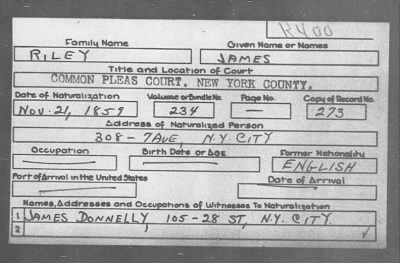 R400
Family Name Given Name or Names
RILEY JAMES
Title and Location of Court
COMMON PLEAS COURT, NEW YORK COUNTY.
Date of Naturalization Volume or Bundle No. Page No. Copy of Record No.
NOV. 21, 1859 234 — 273
Address of Naturalized Person
308 - 7 AVE, N.Y. CITY
Occupation Birth Date or Age Former Nationality
ENGLISH
Port of Arrival in the United States Date of Arrival
Names, Addresses and Occupations of Witnesses To Naturalization
1 JAMES DONNELLY, 105-28 ST, N.Y. CITY.
2